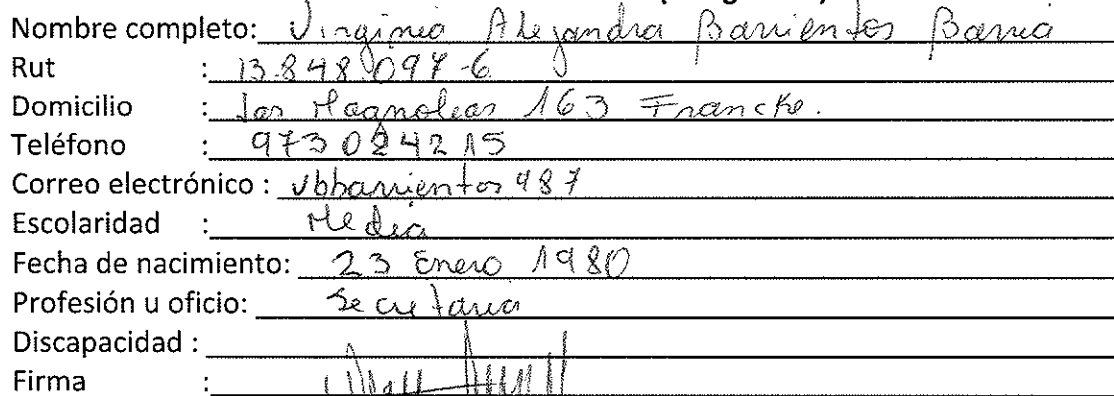 Nombre completo: Virginia Alejandra Barrientos Barria
Rut : 13.848.097-6
Domicilio : Las Magnolias 163 Francke.
Teléfono : 973024215
Correo electrónico : vbbarrientos987
Escolaridad : Media
Fecha de nacimiento: 23 Enero 1980
Profesión u oficio: Secretaria
Discapacidad :
Firma :